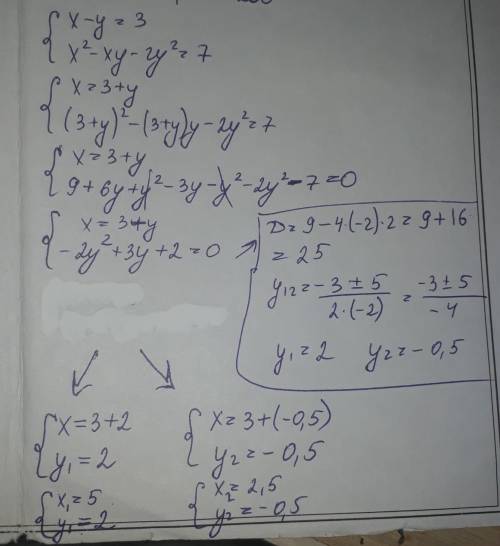 { x-y=3
x²-xy-2y²=7
{ x=3+y
(3+y)²-(3+y)y-2y²=7
{ x=3+y
9+6y+y²-3y-y²-2y²-7=0
{ x=3+y
-2y²+3y+2=0
D=9-4·(-2)·2=9+16
=25
y₁₂=-3±5/2·(-2)=-3±5/-4
y₁=2 y₂=-0,5
{ x=3+2
y₁=2
{ x₁=5
y₁=2
{ x=3+(-0,5)
y₂=-0,5
{ x₂=2,5
y₂=-0,5